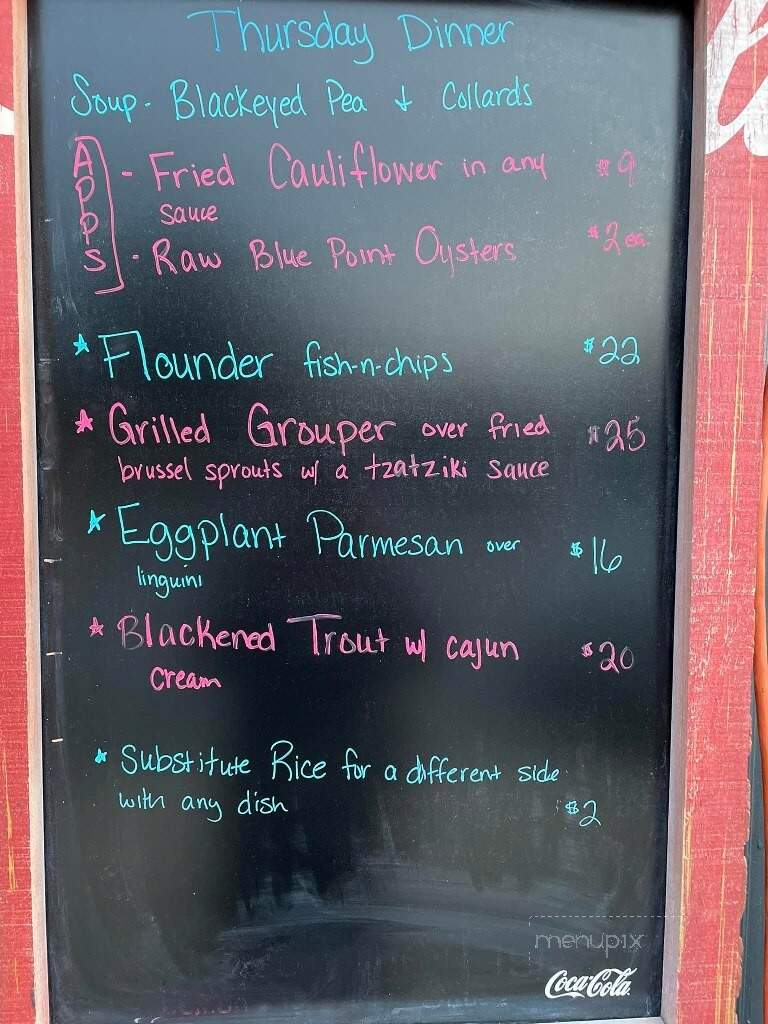 Thursday Dinner
Soup - Blackeyed Pea & Collards
APPS
- Fried Cauliflower in any $9
sauce
- Raw Blue Point Oysters $2 ea.
* Flounder fish-n-chips $22
* Grilled Grouper over fried $25
brussel sprouts w/ a tzatziki sauce
* Eggplant Parmesan over $16
linguini
* Blackened Trout w/ cajun $20
cream
* Substitute Rice for a different side
with any dish $2
menupix
Coca-Cola